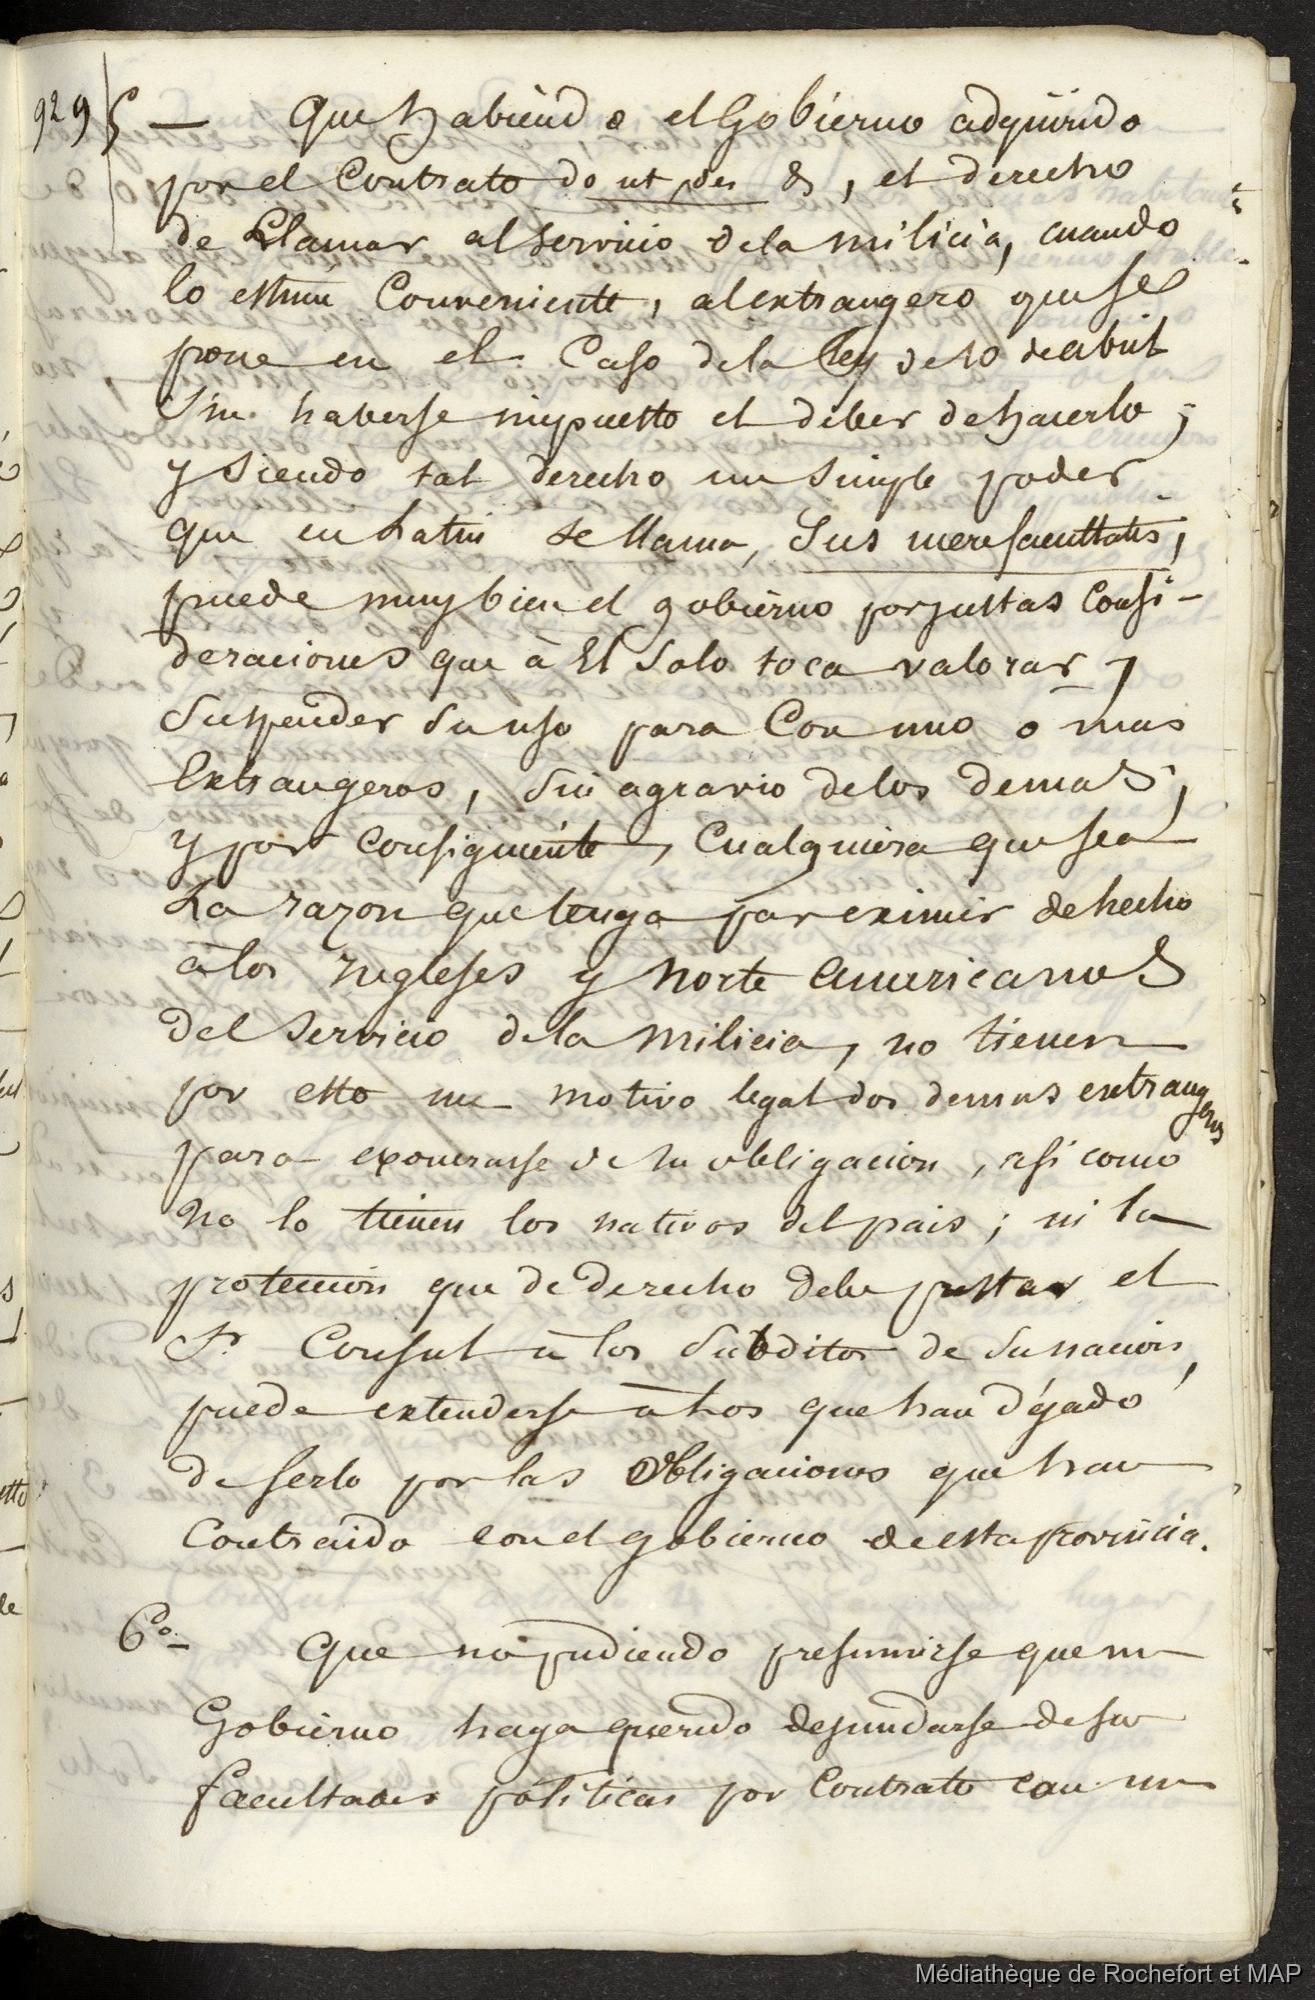 929 5 — Que habiendo el Gobierno adquirido
por el Contrato do ut des &, el derecho
de Llamar al servicio de la milicia, cuando
lo estime Conveniente, al extrangero que se
pone en el Caso de la ley de 10 de abril
Sin haberse impuesto el deber de hacerlo;
y siendo tal derecho un simple poder
que en Latin se llama, Jus mere facultatis,
puede muy bien el gobierno por justas Consi-
deraciones que à El Solo toca valorar,
Suspender su uso para Con uno o mas
Extrangeros, Sin agravio de los demas;
y por consiguiente, Cualquiera que sea
La razon que tenga par eximir de hecho
à los Ingleses y Norte Americanos
del Servicio de la Milicia, no tienen
por esto un motivo legal dos demas extrangeros
para exonerarse de su obligacion, asi como
no lo tienen los nativos del pais; ni la
proteccion que de derecho debe prestar el
Sr. Consul à los Subditos de su nacion,
puede extenderse à Los que han déjado
de serlo por las Obligaciones que han
Contraido con el gobierno de esta provincia.
6º. Que no pudiendo presumirse que un
Gobierno haya querido desnudarse de sus
facultades politicas por Contrato con un
Médiathèque de Rochefort et MAP